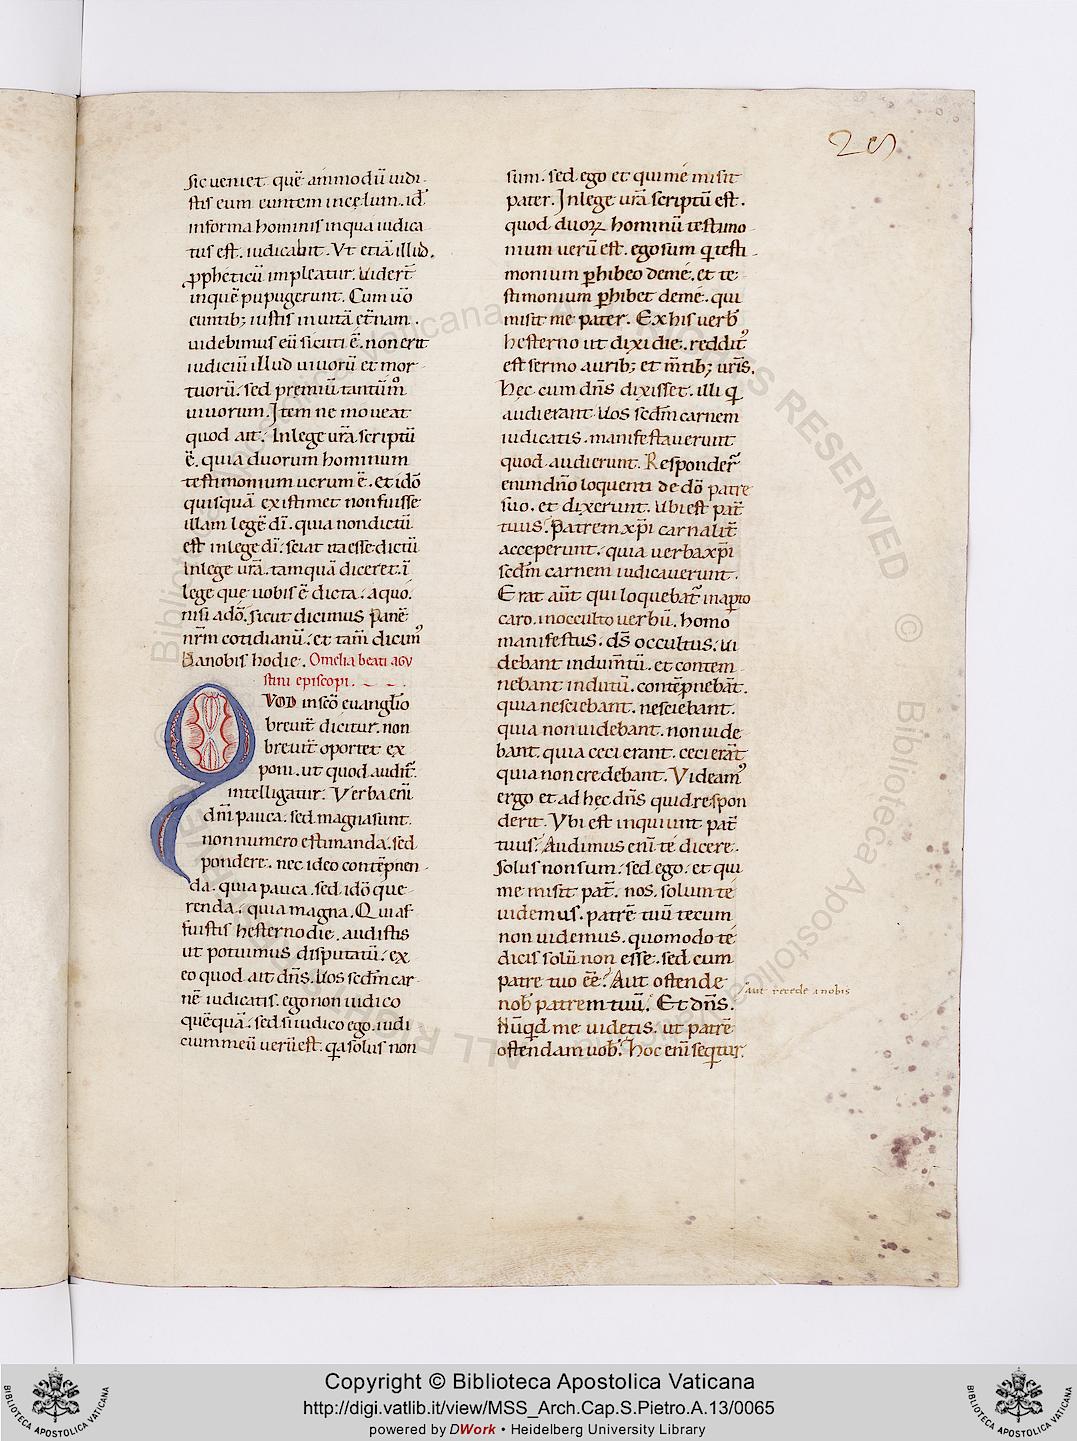 29
sic veniet. quē ammodū vidi
stis eum euntem in cęlum. id ē
informa hominis inqua iudica
tus est. iudicabit. Vt etiā illud.
ꝓpheticū impleatur. Viderт̄
inquē pupugerunt. Cum ūo
euntibꝫ iustis in uitā et̄nam.
uidebimus eū sicuti ē. non erit
iudiciū illud uiuorū et mor
tuorū. sed premiū tantūm̊
uiuorum. Item ne moueat
quod ait. Inlege ur̄a scriptū
ē. quia duorum hominum
testimonium uerum ē. et idō
quisquā existimet non fuisse
illam legē dī. quia non dictū
est inlege dī. sciat ita esse dictū
Inlege ur̄a. tamquā diceret. ī
lege que uobis ē dicta. aquo.
nisi adō. sicut dicimus panē
nr̄m cotidianū. et tam̄ dicim᷒
Da nobis hodie. Omelia beati agu
stini episcopi.
QVOD in scō euanglīo
breuit̄ dicitur. non
breuit̄ oportet ex
poni. ut quod audit̄.
intelligatur. Verba enī
dn̄i pauca. sed magna sunt.
non numero estimanda. sed
pondere. nec ideo contēpnen
da. quia pauca. sed idō que
renda. quia magna. Qui af
fuistis hesterno die. audistis
ut potuimus disputatū. ex
eo quod ait dn̄s. Vos scdm̄ car
nē iudicatis. ego non iudico
quēquā. sed si iudico ego. iudi
cium meū uerū est. qa solus non
sum. sed ego et qui me misit
pater. In lege ur̄a scriptū est.
quod duoꝝ hominū testimo
nium uerū est. ego sum q testi
monium ꝑhibeo de me. et te
stimonium ꝑhibet de me. qui
misit me pater. Ex his uerb̄
hesterno ut dixi die. reddit᷒
est sermo auribꝫ et m̄tibꝫ ur̄is.
Hęc cum dn̄s dixisset. illi q
audierant. Vos scdm̄ carnem
iudicatis. manifestauerunt
quod audierunt. Responder̄
enim dn̄o loquenti de dō patre
suo. et dixerunt. Vbi est pat̄
tuus? Patrem xp̄i carnalit̄
acceperunt. quia uerba xp̄i
scdm̄ carnem iudicauerunt.
Erat aūt qui loquebat̄ in aꝑto
caro. in occulto uerbū. homo
manifestus. ds̄ occultus. Vi
debant indum̄tū. et contem
nebant indutū. contēpnebāt.
quia nesciebant. nesciebant.
quia non uidebant. non uide
bant. quia ceci erant. ceci erāt
quia non credebant. Videam᷒
ergo et ad hęc dn̄s quid respon
derit. Vbi est inquiunt pat̄
tuus? Audimus enī te dicere.
Solus non sum. sed ego. et qui
me misit pat̄. nos. solum te
uidemus. patrē tuū tecum
non uidemus. quomodo te
dicis solū non esse. sed cum
patre tuo ēē? Aut ostende
aut recede a nobis
nob̄ patrem tuū. Et dn̄s.
Nūqd me uidetis. ut patrē
ostendam uob̄. Hoc enī seqtur.
Copyright © Biblioteca Apostolica Vaticana
http://digi.vatlib.it/view/MSS_Arch.Cap.S.Pietro.A.13/0065
powered by DWork • Heidelberg University Library
BIBLIOTECA APOSTOLICA VATICANA
BIBLIOTECA APOSTOLICA VATICANA
Biblioteca Apostolica Vaticana ALL RIGHTS RESERVED © Biblioteca Apostolica Vaticana ALL RIGHTS RESERVED ©